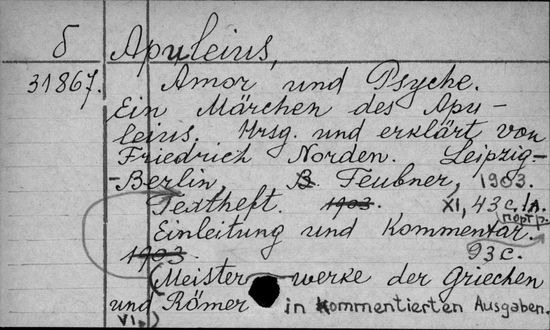 б Apuleius,
31867. Amor und Psyche.
Ein Märchen des Apu-
leius. Hrsg. und erklärt von
Friedrich Norden. Leipzig-
-Berlin, B. Teubner, 1903.
Textheft. 1903. XI, 43 c. 1 л.
портр.
Einleitung und Kommentar.
1903 93 c.
(Meisterwerke der Griechen
und Römer in kommentierten Ausgaben.
VI.)